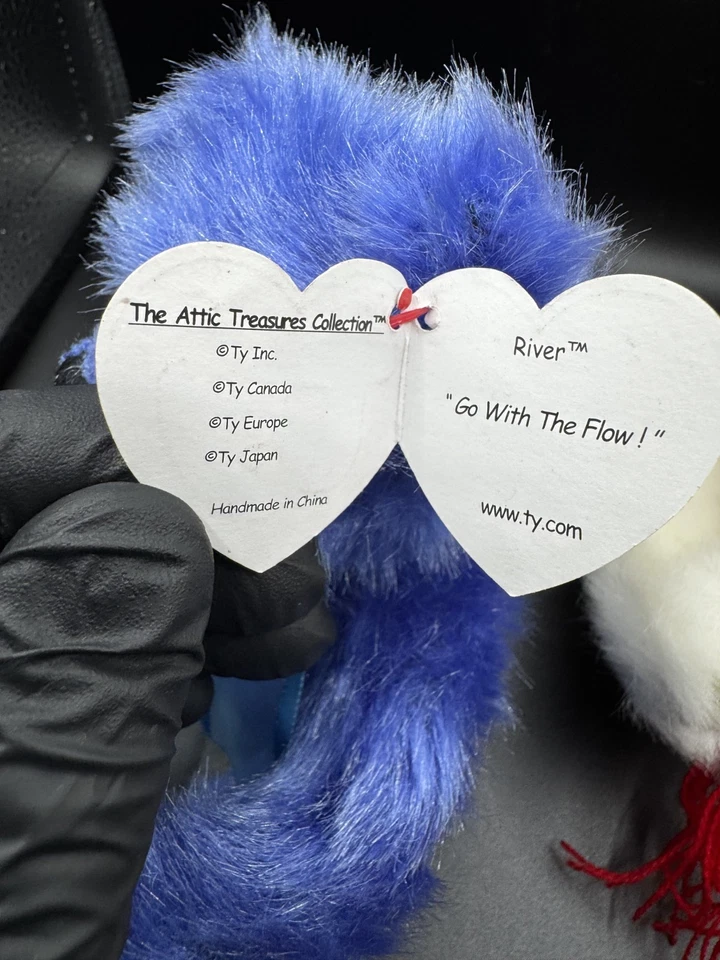 The Attic Treasures Collection™
©Ty Inc.
©Ty Canada
©Ty Europe
©Ty Japan
Handmade in China
River™
"Go With The Flow!"
www.ty.com